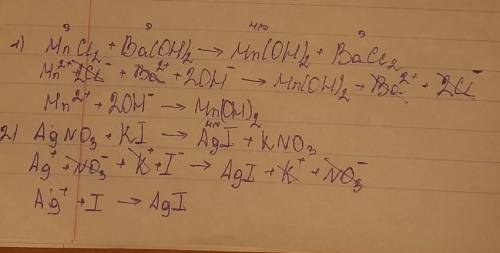 р р нр р
1) MnCl2 + Ba(OH)2 → Mn(OH)2 + BaCl2
Mn²⁺ + 2Cl⁻ + Ba²⁺ + 2OH⁻ → Mn(OH)2 + Ba²⁺ + 2Cl⁻
Mn²⁺ + 2OH⁻ → Mn(OH)2
2) AgNO3 + KI → AgI + KNO3
нр
Ag⁺ + NO3⁻ + K⁺ + I⁻ → AgI + K⁺ + NO3⁻
Ag⁺ + I → AgI